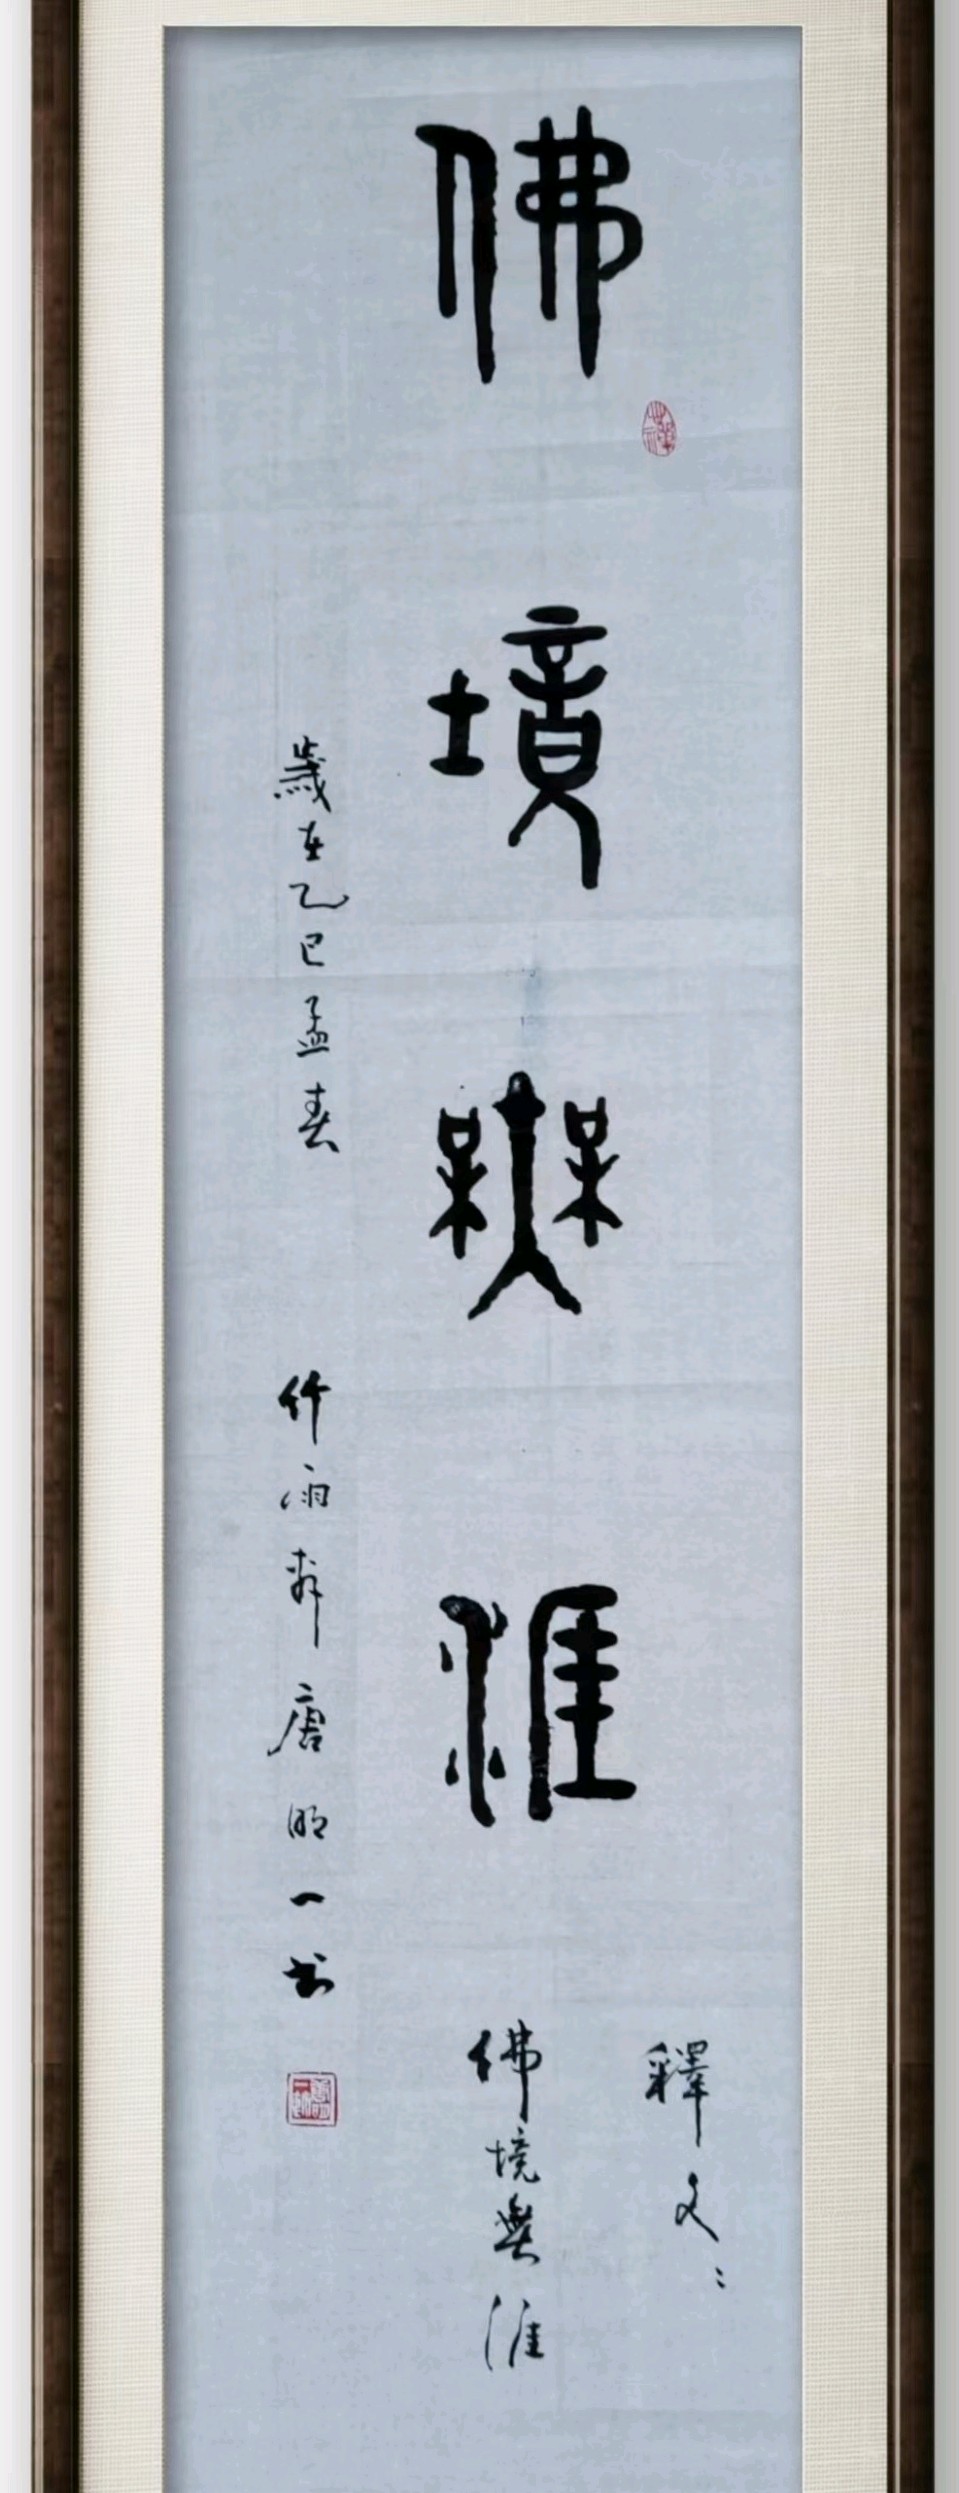 佛境無涯
釋文:
佛境無涯
歲在乙巳孟春
竹雨軒唐明一書